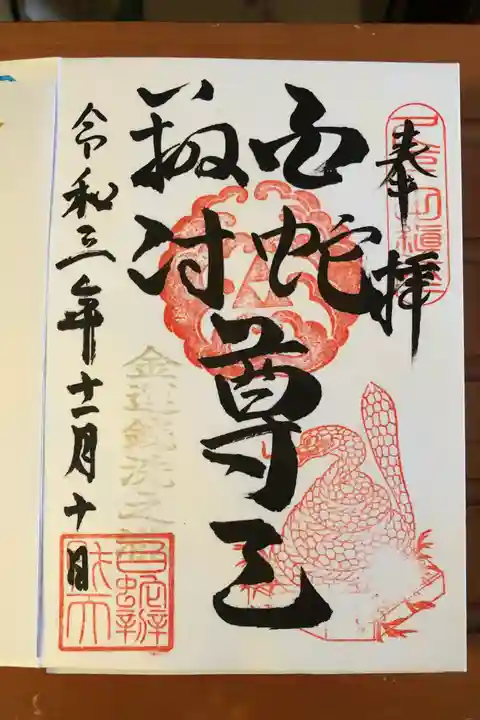 奉拝
白蛇
辨財
尊天
金運銭洗之
令和三年十一月十日
白蛇辨
財天